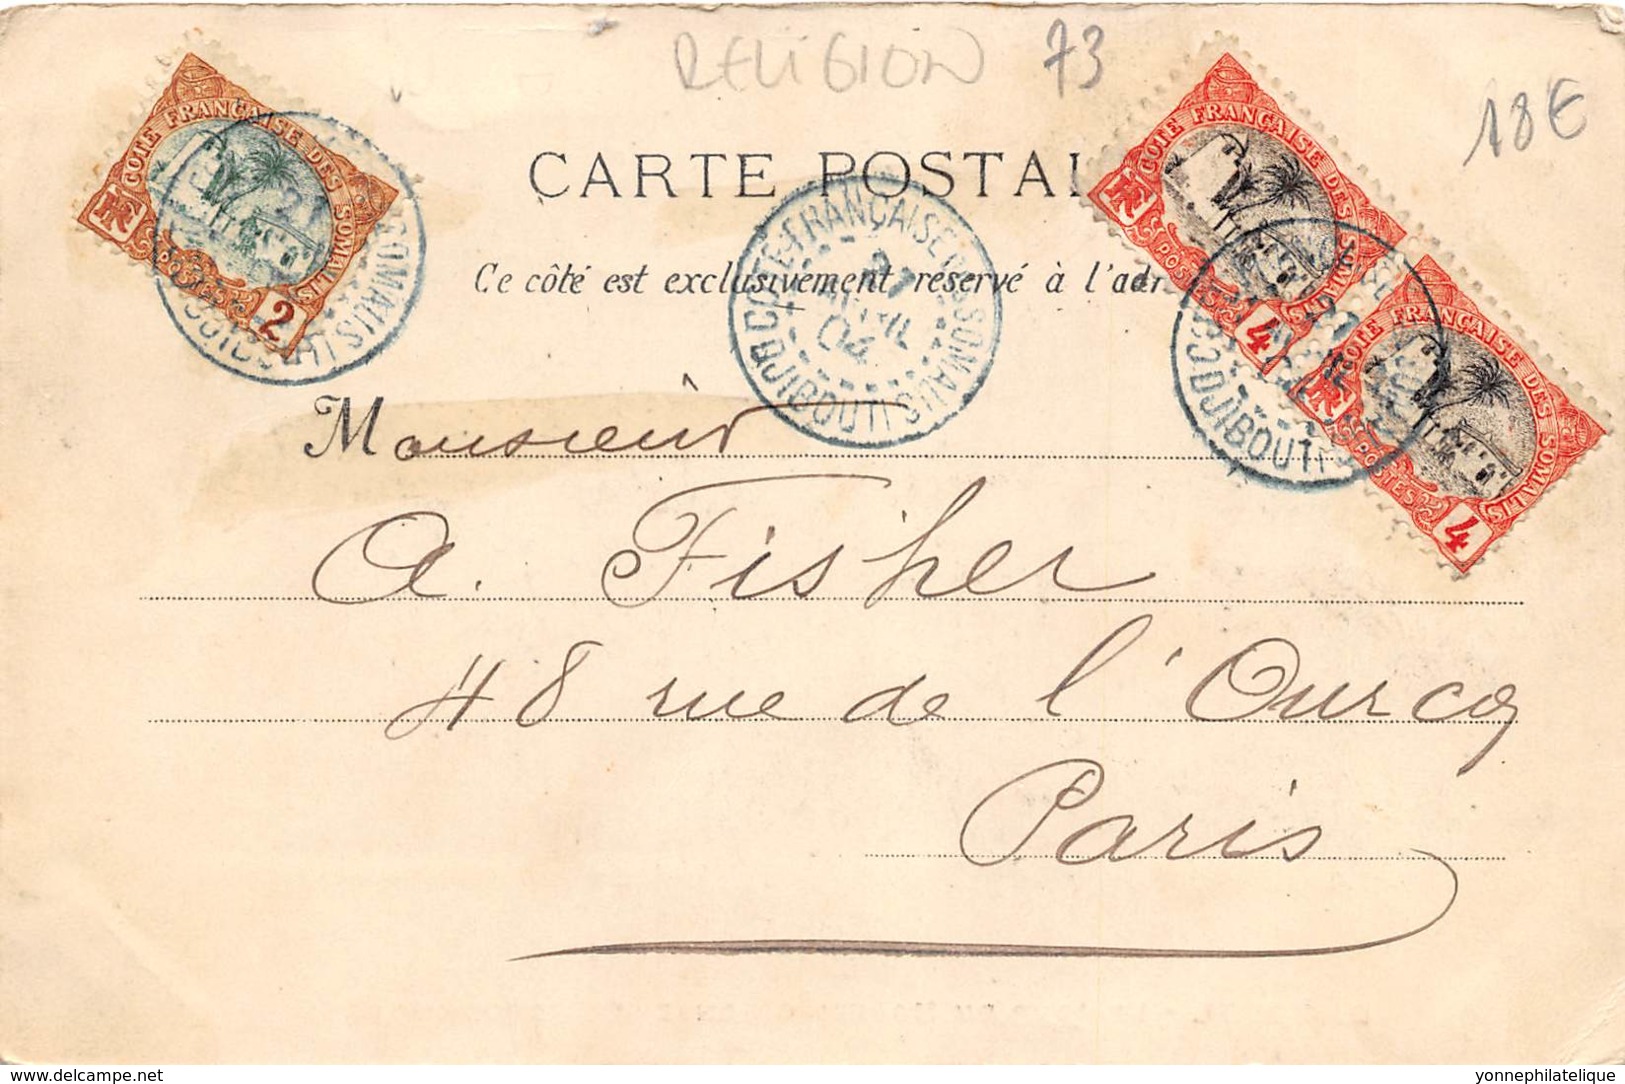 RELIGION 73
18€
CÔTE FRANÇAISE DES SOMALIS
RF
POSTES
2
CARTE POSTAL
Ce côté est exclusivement réservé à l'adr
CÔTE FRANÇAISE DES SOMALIS
RF
POSTES
4
CÔTE FRANÇAISE DES SOMALIS
RF
POSTES
4
CÔTE-FRANÇAISE DES SOMALIS
AVRIL
04
DJIBOUTI
DJIBOUTI
Monsieur
A. Fisher
48 rue de l'Ourcq
Paris
https://www.delcampe.net
yonnephilatelique